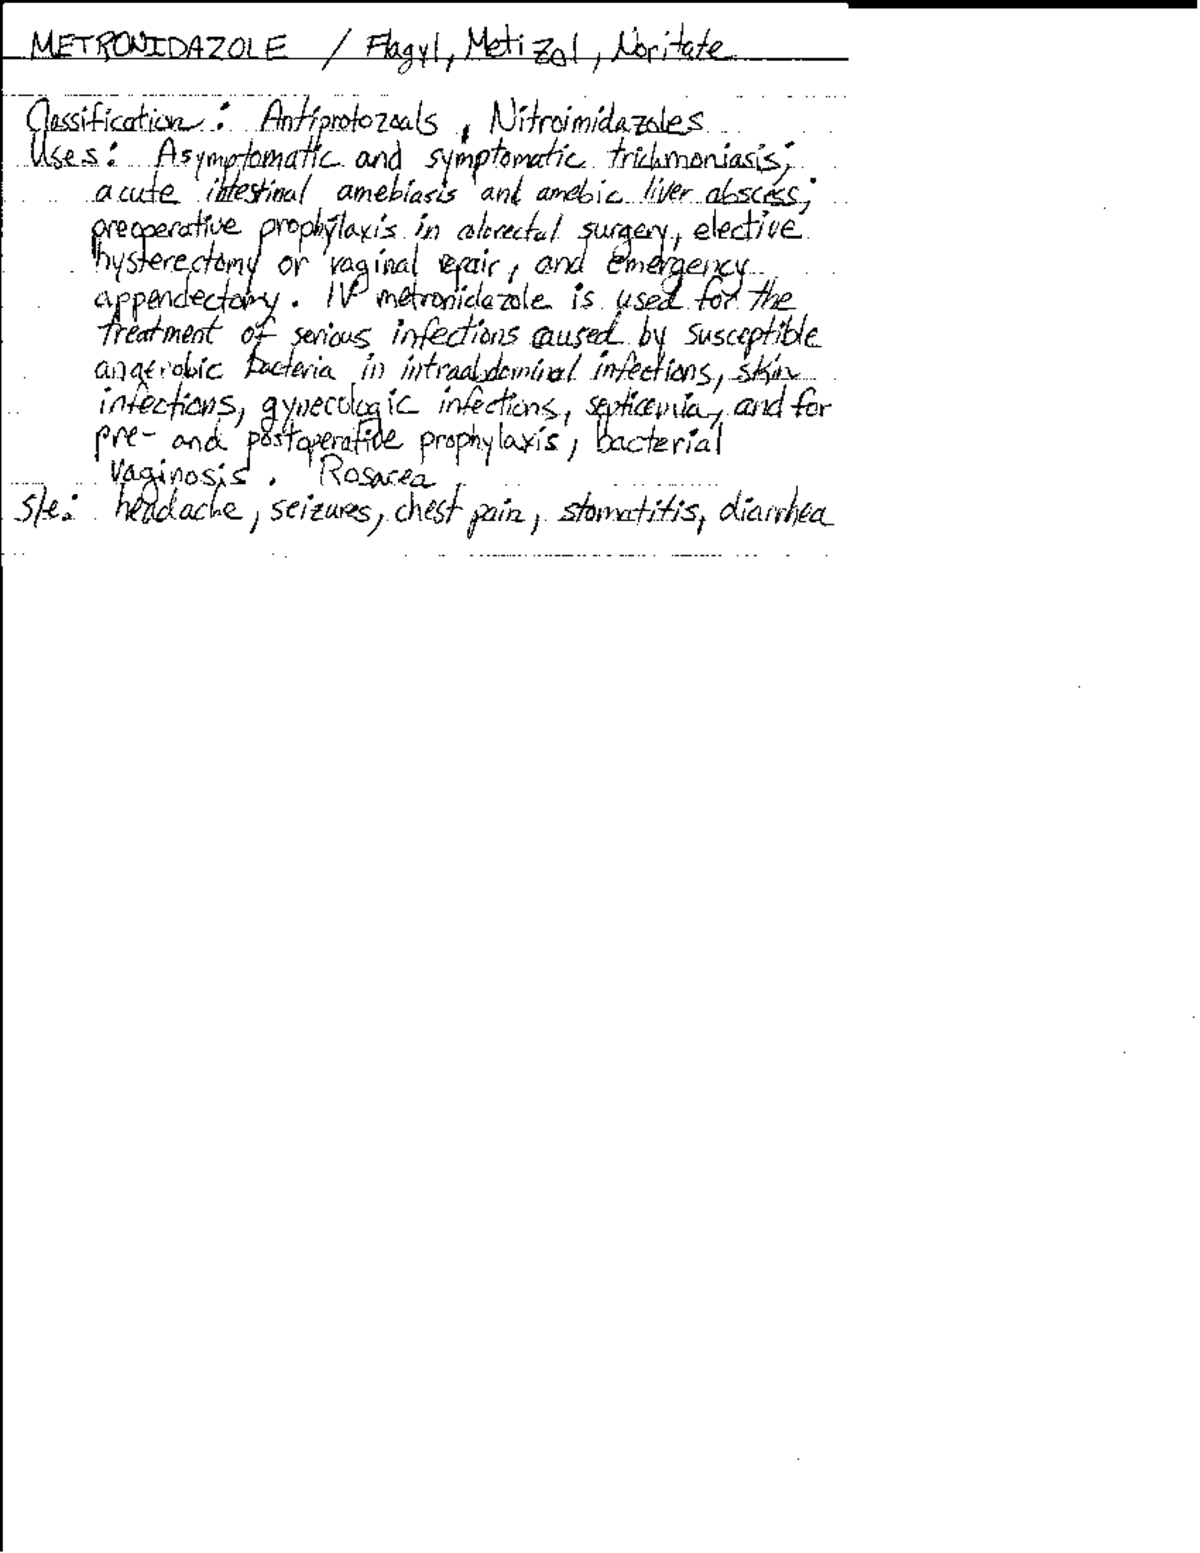 METRONIDAZOLE / Flagyl, Metizol, Noritate
Classification: Antiprotozoals, Nitroimidazoles
Uses: Asymptomatic and symptomatic trichmoniasis;
acute intestinal amebiasis and amebic liver abscess;
preoperative prophylaxis in colorectal surgery, elective
hysterectomy or vaginal repair, and emergency
appendectomy. IV metronidazole is used for the
treatment of serious infections caused by susceptible
anaerobic bacteria in intraabdominal infections, skin
infections, gynecologic infections, septicemia, and for
pre- and postoperative prophylaxis, bacterial
vaginosis. Rosacea
s/e: headache, seizures, chest pain, stomatitis, diarrhea